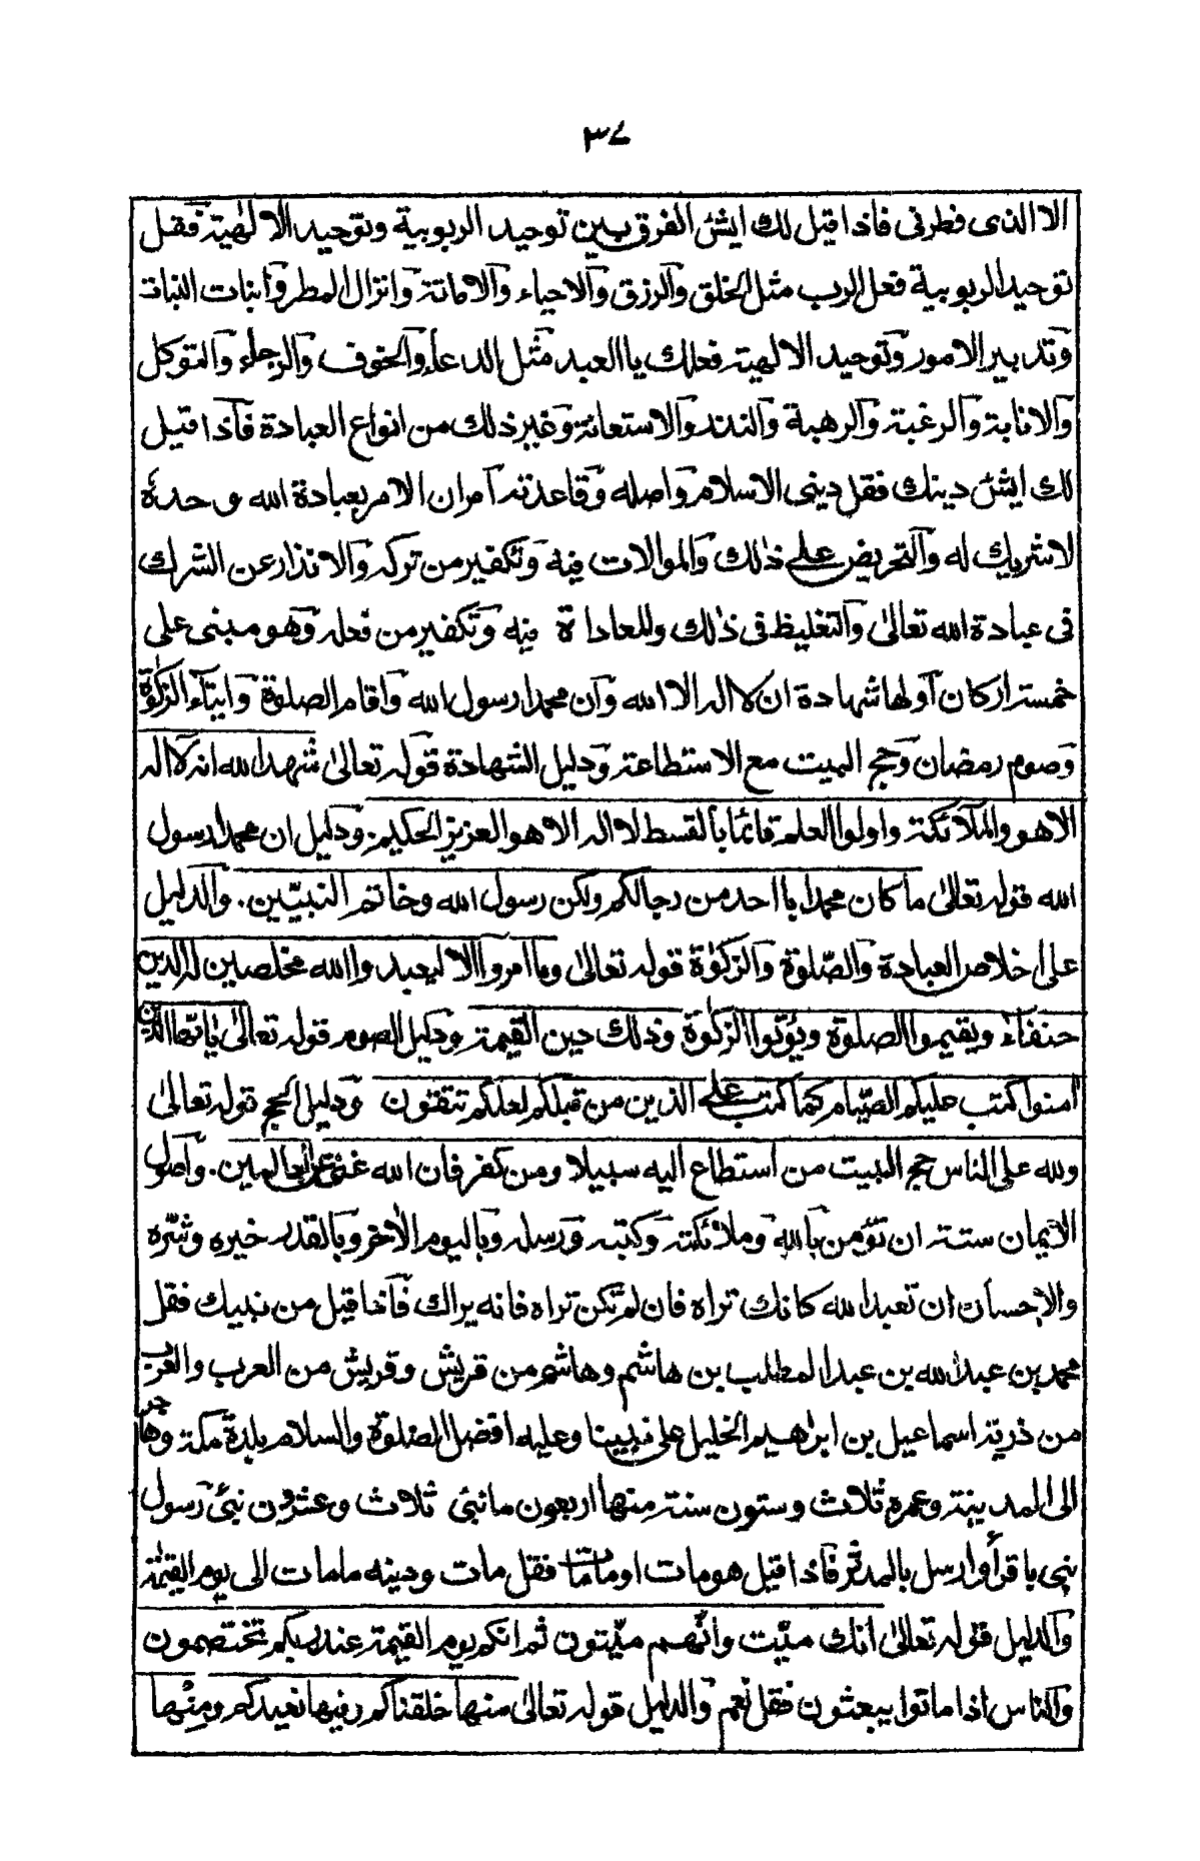 ٣٧
الا الذى فطرنى فاذا قيل لك ايش الفرق بين توحيد الربوبية وتوحيد الالٰهية فقل
توحيد الربوبية فعل الرب مثل الخلق والرزق والاحياء والاماتة وانزال المطر وانبات النبات
وتدبير الامور وتوحيد الالهية فعلك يا العبد مثل الدعاء والخوف والرجاء والتوكل
والانابة والرغبة والرهبة والنذر والاستعانة وغير ذلك من انواع العبادة فاذا قيل
لك ايش دينك فقل دينى الاسلام واصله وقاعدته امران الامر بعبادة الله وحدهٗ
لا شريك له والتحريض على ذٰلك والموالات فيه وتكفير من تركه والانذار عن الشرك
فى عبادة الله تعالىٰ والتغليظ فى ذٰلك وللمعاداة فيه وتكفير من فعله وهو مبنى على
خمسة اركان اولها شهادة ان لا اله الا الله وان محمدا رسول الله واقام الصلوة وايتاء الزكوٰة
وصوم رمضان وحج البيت مع الاستطاعة ودليل الشهادة قوله تعالىٰ شهد الله انه لا اله
الا هو والملائكة واولوا العلم قائما بالقسط لا اله الا هو العزيز الحكيم. ودليل ان محمدا رسول
الله قوله تعالىٰ ما كان محمد ابا احد من رجالكم ولكن رسول الله وخاتم النبيّين. والدليل
على اخلاص العبادة والصّلوة والزكوٰة قوله تعالىٰ وما امروا الا ليعبدوا الله مخلصين له الدين
حنفاء ويقيموا الصلوة ويؤتوا الزكوٰة وذلك دين القيمة ودليل الصوم قوله تعالىٰ يٰايّها الذين
اٰمنوا كتب عليكم الصّيام كما كتب على الذين من قبلكم لعلكم تتقون ودليل الحج قوله تعالىٰ
ولله على الناس حج البيت من استطاع اليه سبيلا ومن كفر فان الله غنى عن العالمين. واصول
الايمان ستة ان تؤمن بالله وملائكته وكتبه ورسله وباليوم الاٰخر وبالقدر خيره وشرّه
والاحسان ان تعبد الله كانك تراه فان لم تكن تراه فانه يراك فاذا قيل من نبيك فقل
محمد بن عبد الله بن عبد المطلب بن هاشم وهاشم من قريش وقريش من العرب والعرب
من ذرية اسماعيل بن ابراهيم الخليل على نبينا وعليه افضل الصلوة والسلام بلدة مكة وهاجر
الى المدينة وعمره ثلاث وستون سنة منها اربعون مانبئ ثلاث وعشرون نبئ رسول
نبى باقرأ وارسل بالمدثر فاذا قيل هو مات او ما مات فقل مات ودينه ما مات الى يوم القيٰمة
والدليل قوله تعالىٰ انك ميّت وانّهم ميّتون ثم انكم يوم القيمة عند ربكم تختصمون
والناس اذا ماتوا يبعثون فقل نعم والدليل قوله تعالىٰ منها خلقناكم وفيها نعيدكم ومنها